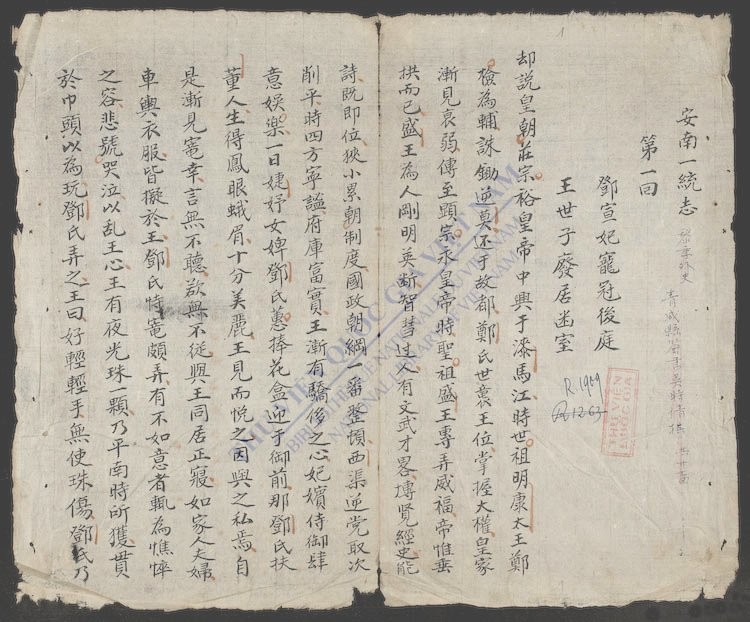 安南一統志
第一回
鄧宣妃寵冠後庭
王世子廢居幽室
却說皇朝莊宗裕皇帝中興于漆馬江時世祖明康太王鄭
檢為輔誅鋤逆莫还于故都鄭氏世襲王位掌握大權皇家
漸見衰弱傳至顕宗永皇帝時聖祖盛王專弄威福帝惟垂
拱而已盛王為人剛明英断智慧过人有文武才畧博覧經史能
詩既即位狹小累朝制度國政朝綱一番整頓西渠逆党取次
削平時四方寧謐府庫富實王漸有驕侈之心妃嬪侍御肆
意娛楽一日婕妤女婢鄧氏蕙捧花盒迎于御前那鄧氏扶
董人生得鳳眼蛾眉十分美麗王見而悅之因與之私焉自
是漸見寵幸言無不聽欲無不從與王同居正寢如家人夫婦
車輿衣服皆擬於王鄧氏恃寵頗弄有不如意者輒為憔悴
之容悲號哭泣以乱王心王有夜光珠一顆乃平南時所獲貫
於巾頭以為玩鄧氏弄之王曰好輕輕手無使珠傷鄧氏乃
R.1909
THƯ VIỆN
QUỐC GIA
THƯ VIỆN QUỐC GIA VIỆT NAM
BIBLIOTHÈQUE NATIONALE DU VIETNAM
NATIONAL LIBRARY OF VIETNAM
1